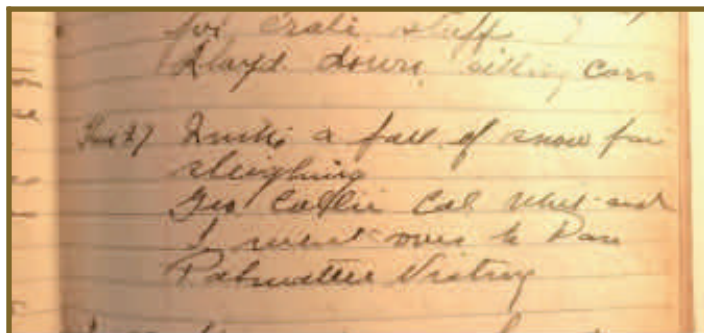 for Crate stuff
Lloyd down selling cars
27 Quite a fall of snow fair
sleighing
Geo Collie Cal Whit and
I went over to Dan
Visiting